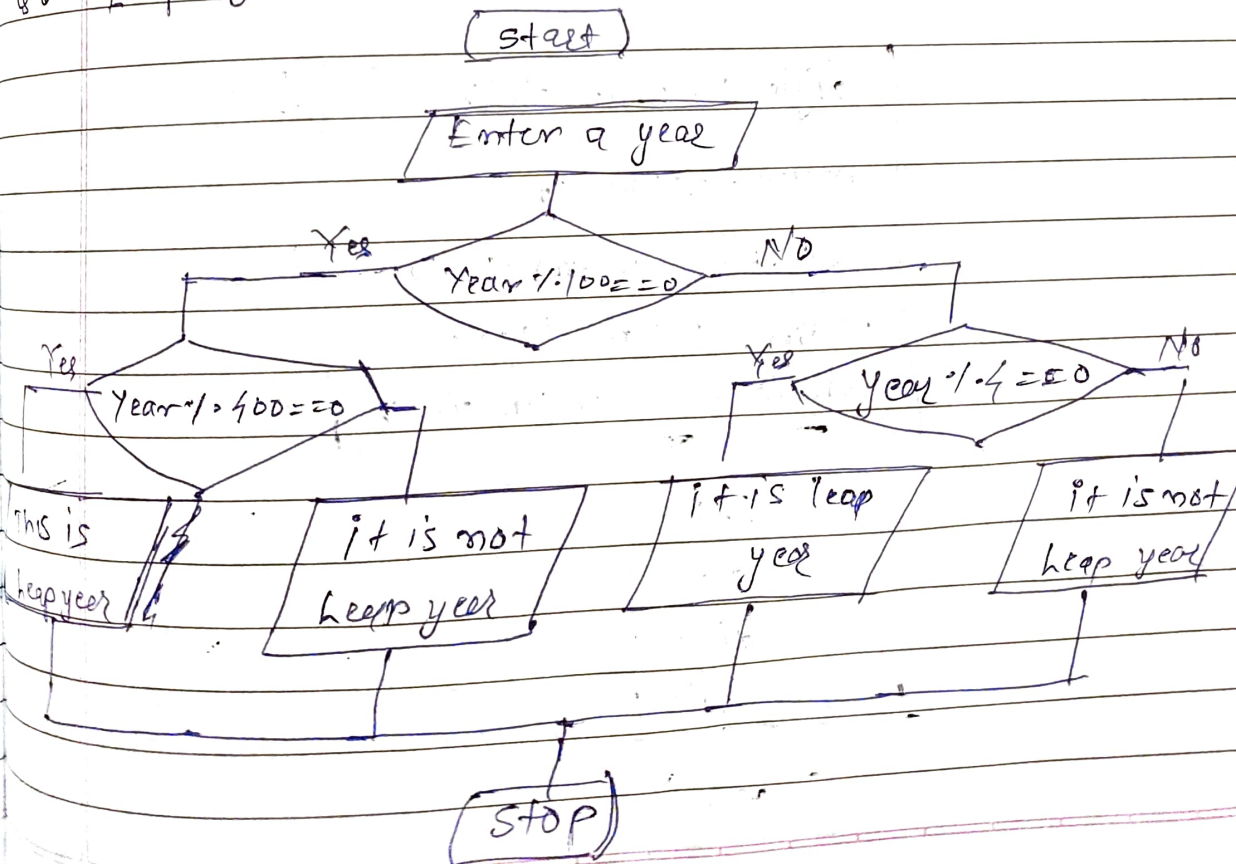 Start
Enter a year
Yes
No
Year % 100==0
Yes
Year % 400==0
Yes
No
year % 4 ==0
This is
Leap year
it is not
Leap year
it is leap
year
it is not
Leap year
Stop